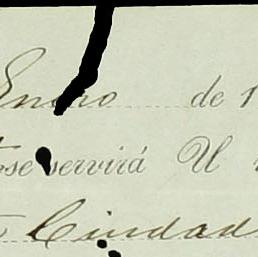 Enero de 1
se servirá U
Ciudad